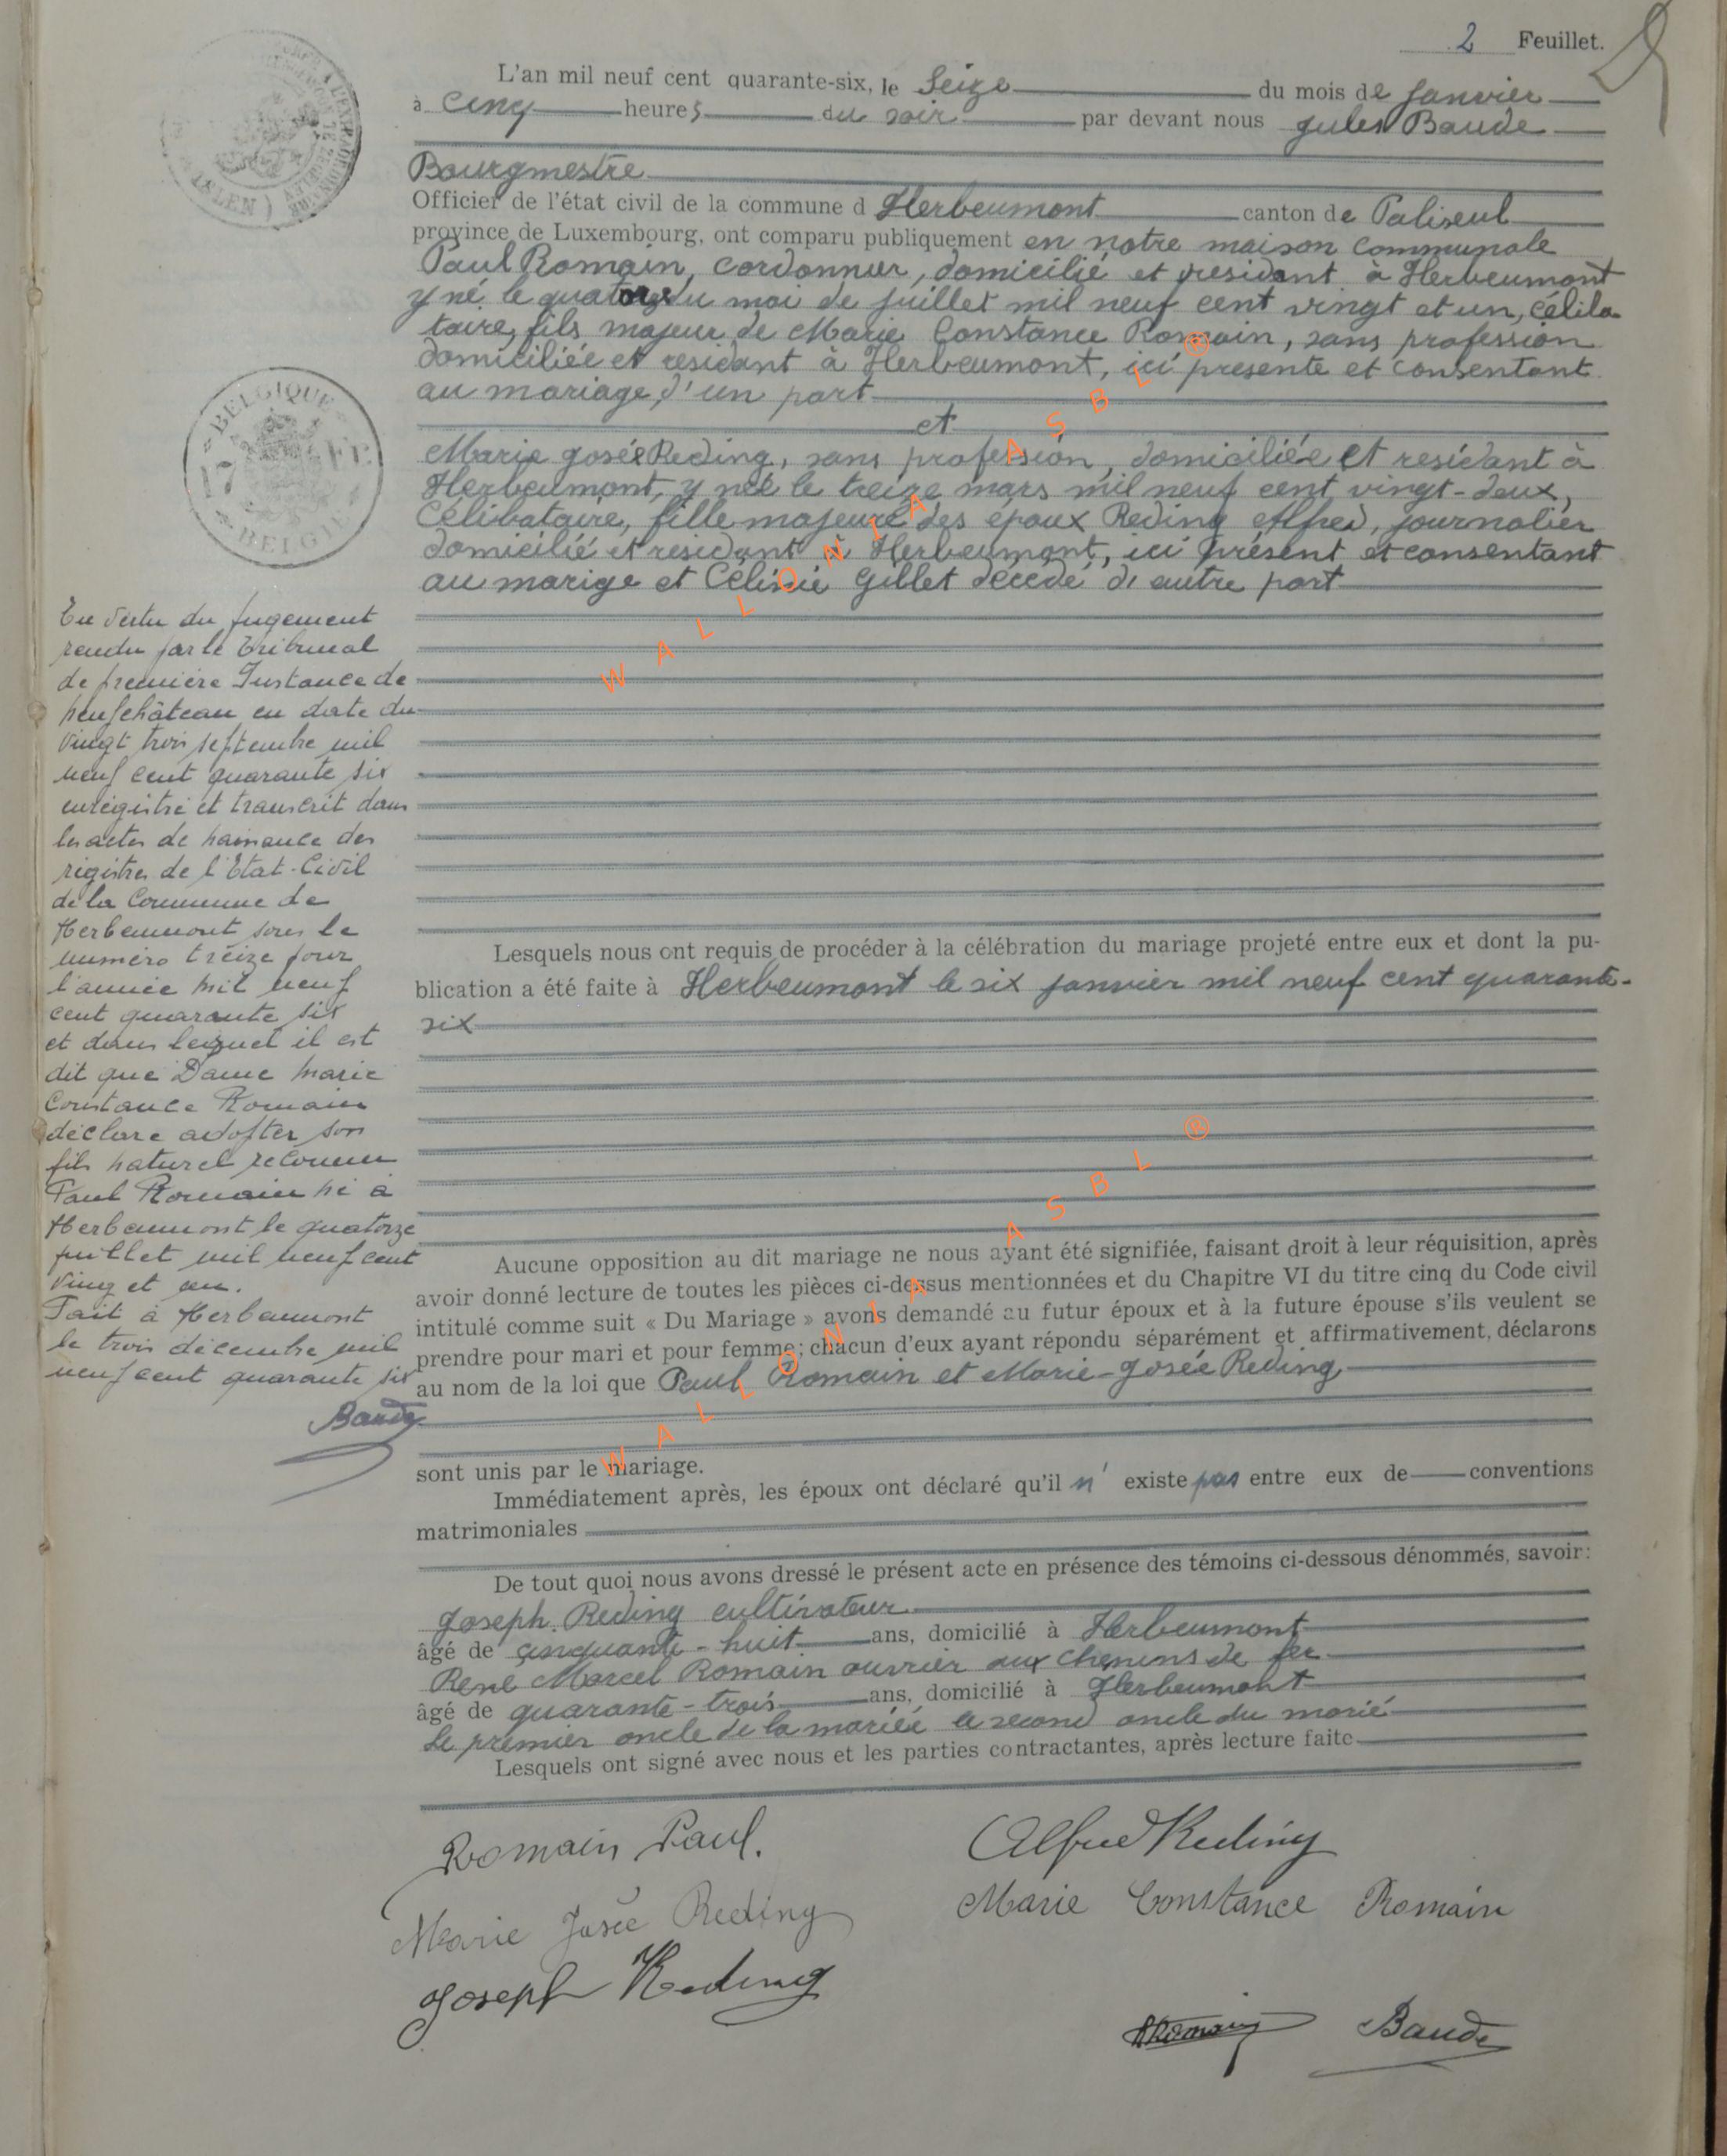 2 Feuillet.
L'an mil neuf cent quarante-six, le Seize du mois de Janvier
à cinq heures du soir par devant nous Jules Baude
Bourgmestre
Officier de l'état civil de la commune d Herbeumont canton de Paliseul
province de Luxembourg, ont comparu publiquement en notre maison communale
Paul Romain, cordonnier, domicilié et residant à Herbeumont
y né le quatorze du moi de juillet mil neuf cent vingt et un, céliba
taire, fils majeur de Marie Constance Romain, sans profession
domiciliée et residant à Herbeumont, ici presente et consentant
au mariage, d'un part
et
Marie Josée Reding, sans profession, domiciliée et residant à
Herbeumont, y née le treize mars mil neuf cent vingt-deux,
Célibataire, fille majeure des époux Reding Alfred, journalier
domicilié et residant à Herbeumont, ici présent et consentant
au marige et Célinie Gillet décédé d'autre part
Lesquels nous ont requis de procéder à la célébration du mariage projeté entre eux et dont la pu-
blication a été faite à Herbeumont le six janvier mil neuf cent quarante-
six
Aucune opposition au dit mariage ne nous ayant été signifiée, faisant droit à leur réquisition, après
avoir donné lecture de toutes les pièces ci-dessus mentionnées et du Chapitre VI du titre cinq du Code civil
intitulé comme suit « Du Mariage » avons demandé au futur époux et à la future épouse s'ils veulent se
prendre pour mari et pour femme; chacun d'eux ayant répondu séparément et affirmativement, déclarons
au nom de la loi que Paul Romain et Marie-Josée Reding
sont unis par le mariage.
Immédiatement après, les époux ont déclaré qu'il n' existe pas entre eux de conventions
matrimoniales
De tout quoi nous avons dressé le présent acte en présence des témoins ci-dessous dénommés, savoir:
Joseph Reding cultivateur
âgé de cinquante-huit ans, domicilié à Herbeumont
René Marcel Romain ouvrier aux chemins de fer
âgé de quarante-trois ans, domicilié à Herbeumont
Le premier oncle de la mariée le second oncle du marié
Lesquels ont signé avec nous et les parties contractantes, après lecture faite
Romain Paul.
Alfred Reding
Marie Josée Reding
Marie Constance Romain
Joseph Reding
Romain
Baude
En vertu du jugement
rendu par le Tribunal
de première Instance de
Neufchâteau en date du
vingt trois septembre mil
neuf cent quarante six
enregistré et transcrit dans
les actes de naissance des
registres de l'Etat-Civil
de la Commune de
Herbeumont sous le
numéro treize pour
l'année mil neuf
cent quarante six
et dans lequel il est
dit que Dame Marie
Constance Romain
déclare adopter son
fils naturel reconnu
Paul Romain né à
Herbeumont le quatorze
juillet mil neuf cent
ving et un.
Fait à Herbeumont
le trois décembre mil
neuf cent quarante six
Baude
BELGIQUE
5 FR
BELGIE
WALLONIA ASBL ®
WALLONIA ASBL ®